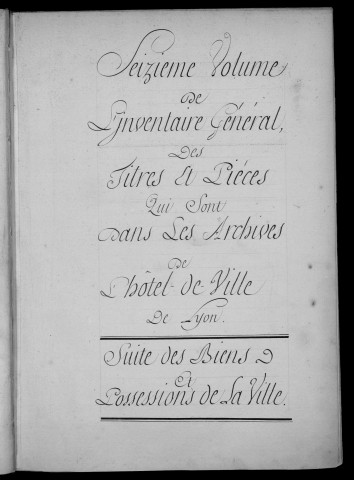 Seizieme Volume
De
L'jnventaire Général,
Des
Titres Et Piéces
Qui Sont
Dans Les Archives
De
L'hôtel-de-Ville
De Lyon.
Suite des Biens
Et
Possessions de La Ville.